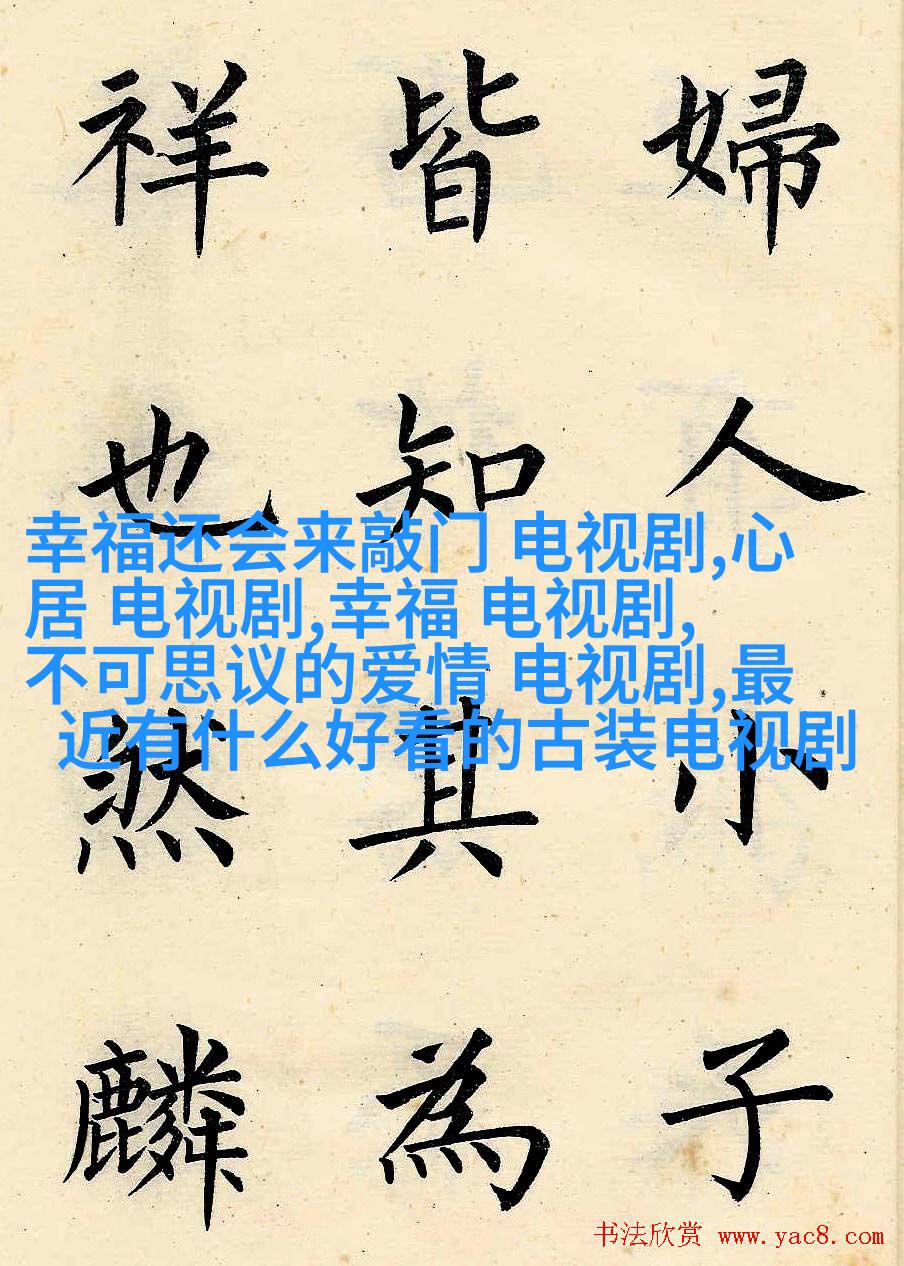 婦人小子
皆知其為
祥也然麟
幸福还会来敲门 电视剧,心
居 电视剧,幸福 电视剧,
不可思议的爱情 电视剧,最
近有什么好看的古装电视剧
书法欣赏 www.yac8.com